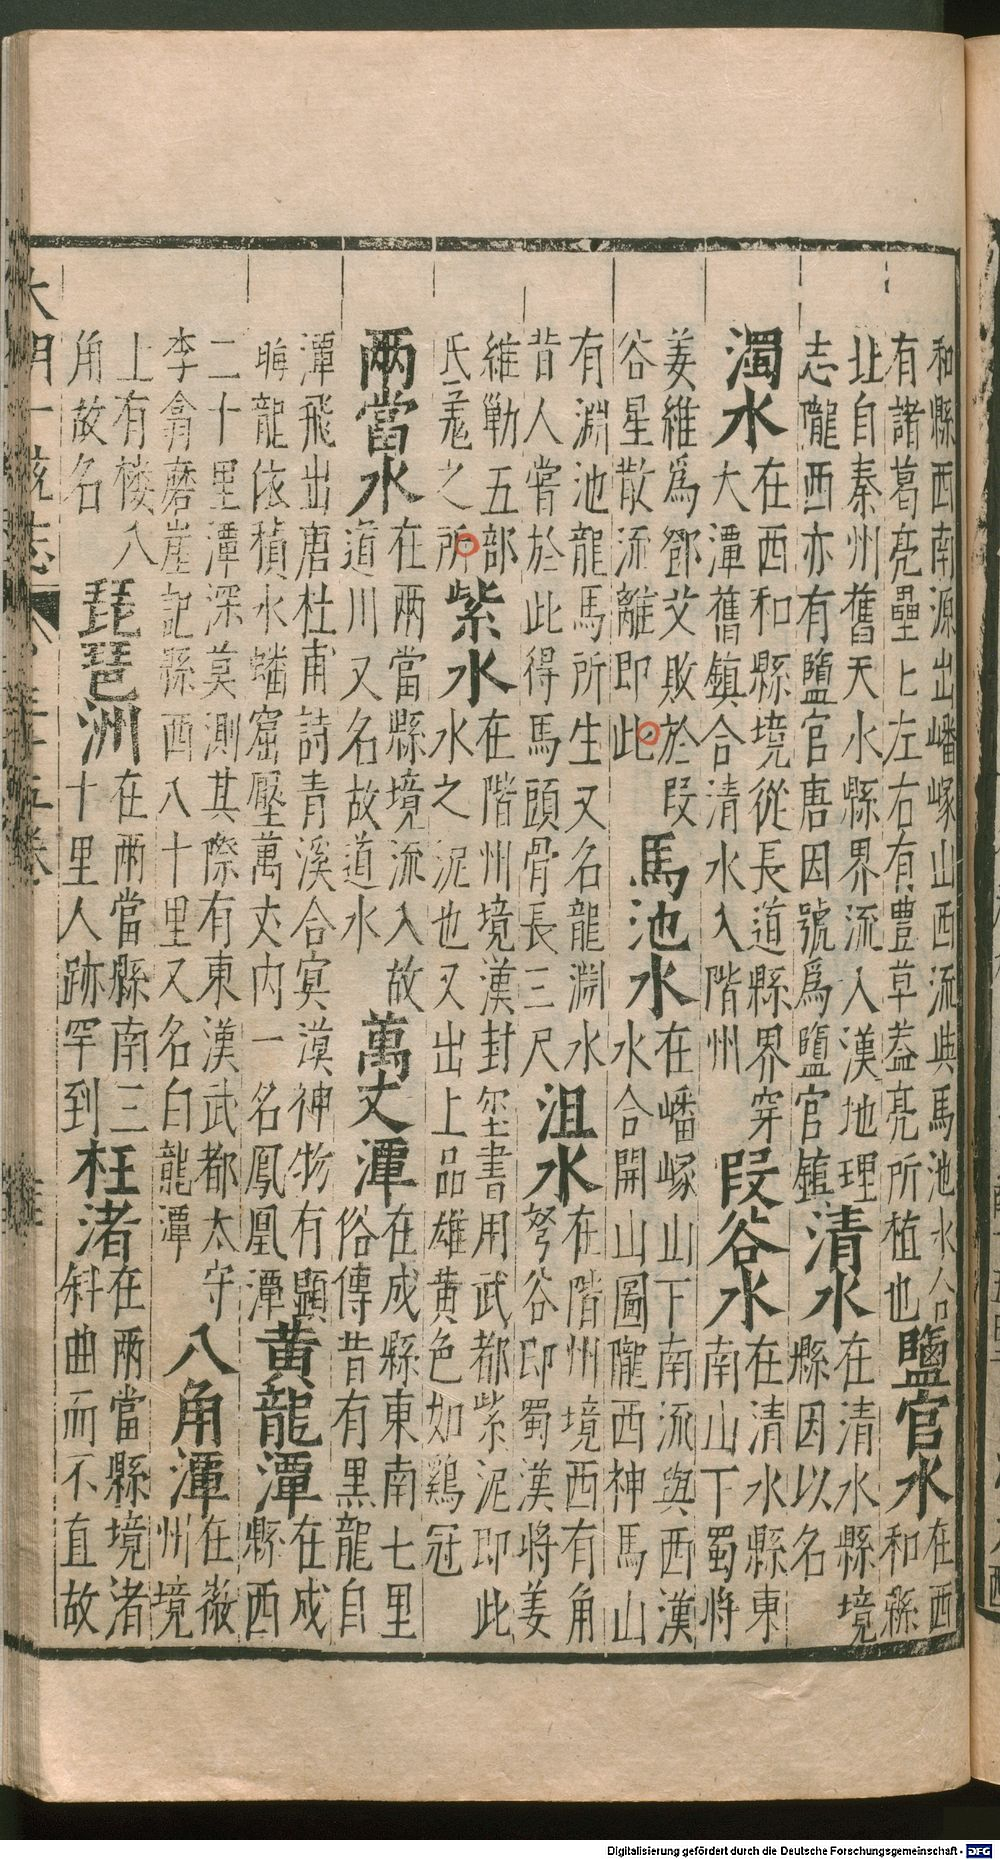 和縣西南源出嶓冢山西流與馬池水合
有諸葛亮壘上左右有豊草蓋亮所植也
鹽官水
在西
和縣
北自秦州舊天水縣界流入漢地理
志隴西亦有鹽官唐因號爲鹽官鎮
清水
在清水縣境
縣因以名
濁水
在西和縣境從長道縣界穿
大潭舊鎮合清水入階州
段谷水
在清水縣東
南山下蜀將
姜維爲鄧艾敗於段
谷星散流離即此
馬池水
在嶓冢山下南流與西漢
水合開山圖隴西神馬山
有淵池龍馬所生又名龍淵水
昔人嘗於此得馬頭骨長三尺
沮水
在階州境西有角
弩谷即蜀漢將姜
維勦五部
氐羌之所
紫水
在階州境漢封壐書用武都紫泥即此
水之泥也又出上品雄黄色如鷄冠
两當水
在兩當縣境流入故
道川又名故道水
萬丈潭
在成縣東南七里
俗傳昔有黒龍自
潭飛出唐杜甫詩青溪合冥漠神物有顯
晦龍依積水蟠窟壓萬丈内一名鳳凰潭
黄龍潭
在成
縣西
二十里潭深莫測其際有東漢武都太守
李翕磨崖記縣西八十里又名白龍潭
八角潭
在徽
州境
上有楼八
角故名
琵琶洲
在兩當縣南三
十里人跡罕到
枉渚
在兩當縣境渚
斜曲而不直故
大明一統志
三十五卷
Digitalisierung gefördert durch die Deutsche Forschungsgemeinschaft - DFG